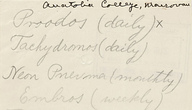 Anatolia College, Marsovan
Proodos (daily) x
Tachydromos (daily)
Neon Pnevma (monthly)
Embros (weekly)